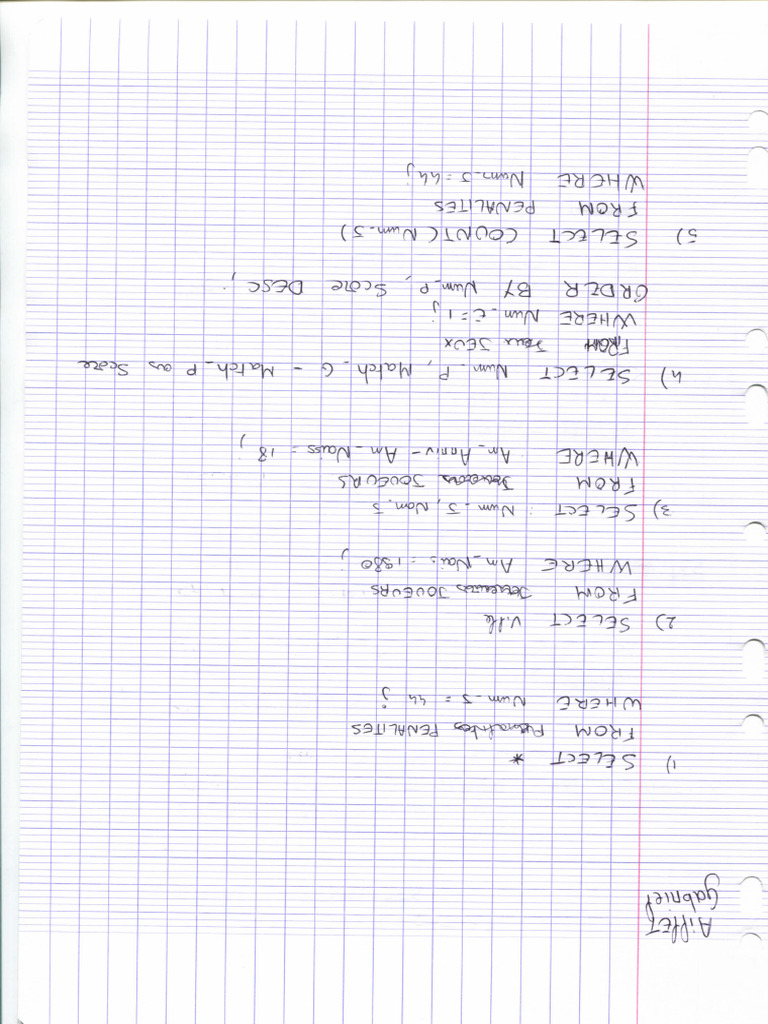 AillET
Gabriel
1) SELECT *
FROM Penalités PENALITES
WHERE Num_J = 44 ;
2) SELECT Ville
FROM JOUEURS
WHERE An_Nais = 1980 ;
3) SELECT Num_J, Nom_J
FROM Joueurs JOUEURS
WHERE An_Anniv - An_Naiss = 18 ;
4) SELECT Num_P, Match_G - Match_P as Score
FROM Jeux JEUX
WHERE Num_E = 1 ;
ORDER BY Num_P, Score DESC ;
5) SELECT COUNT(Num_J)
FROM PENALITES
WHERE Num_J = 44 ;